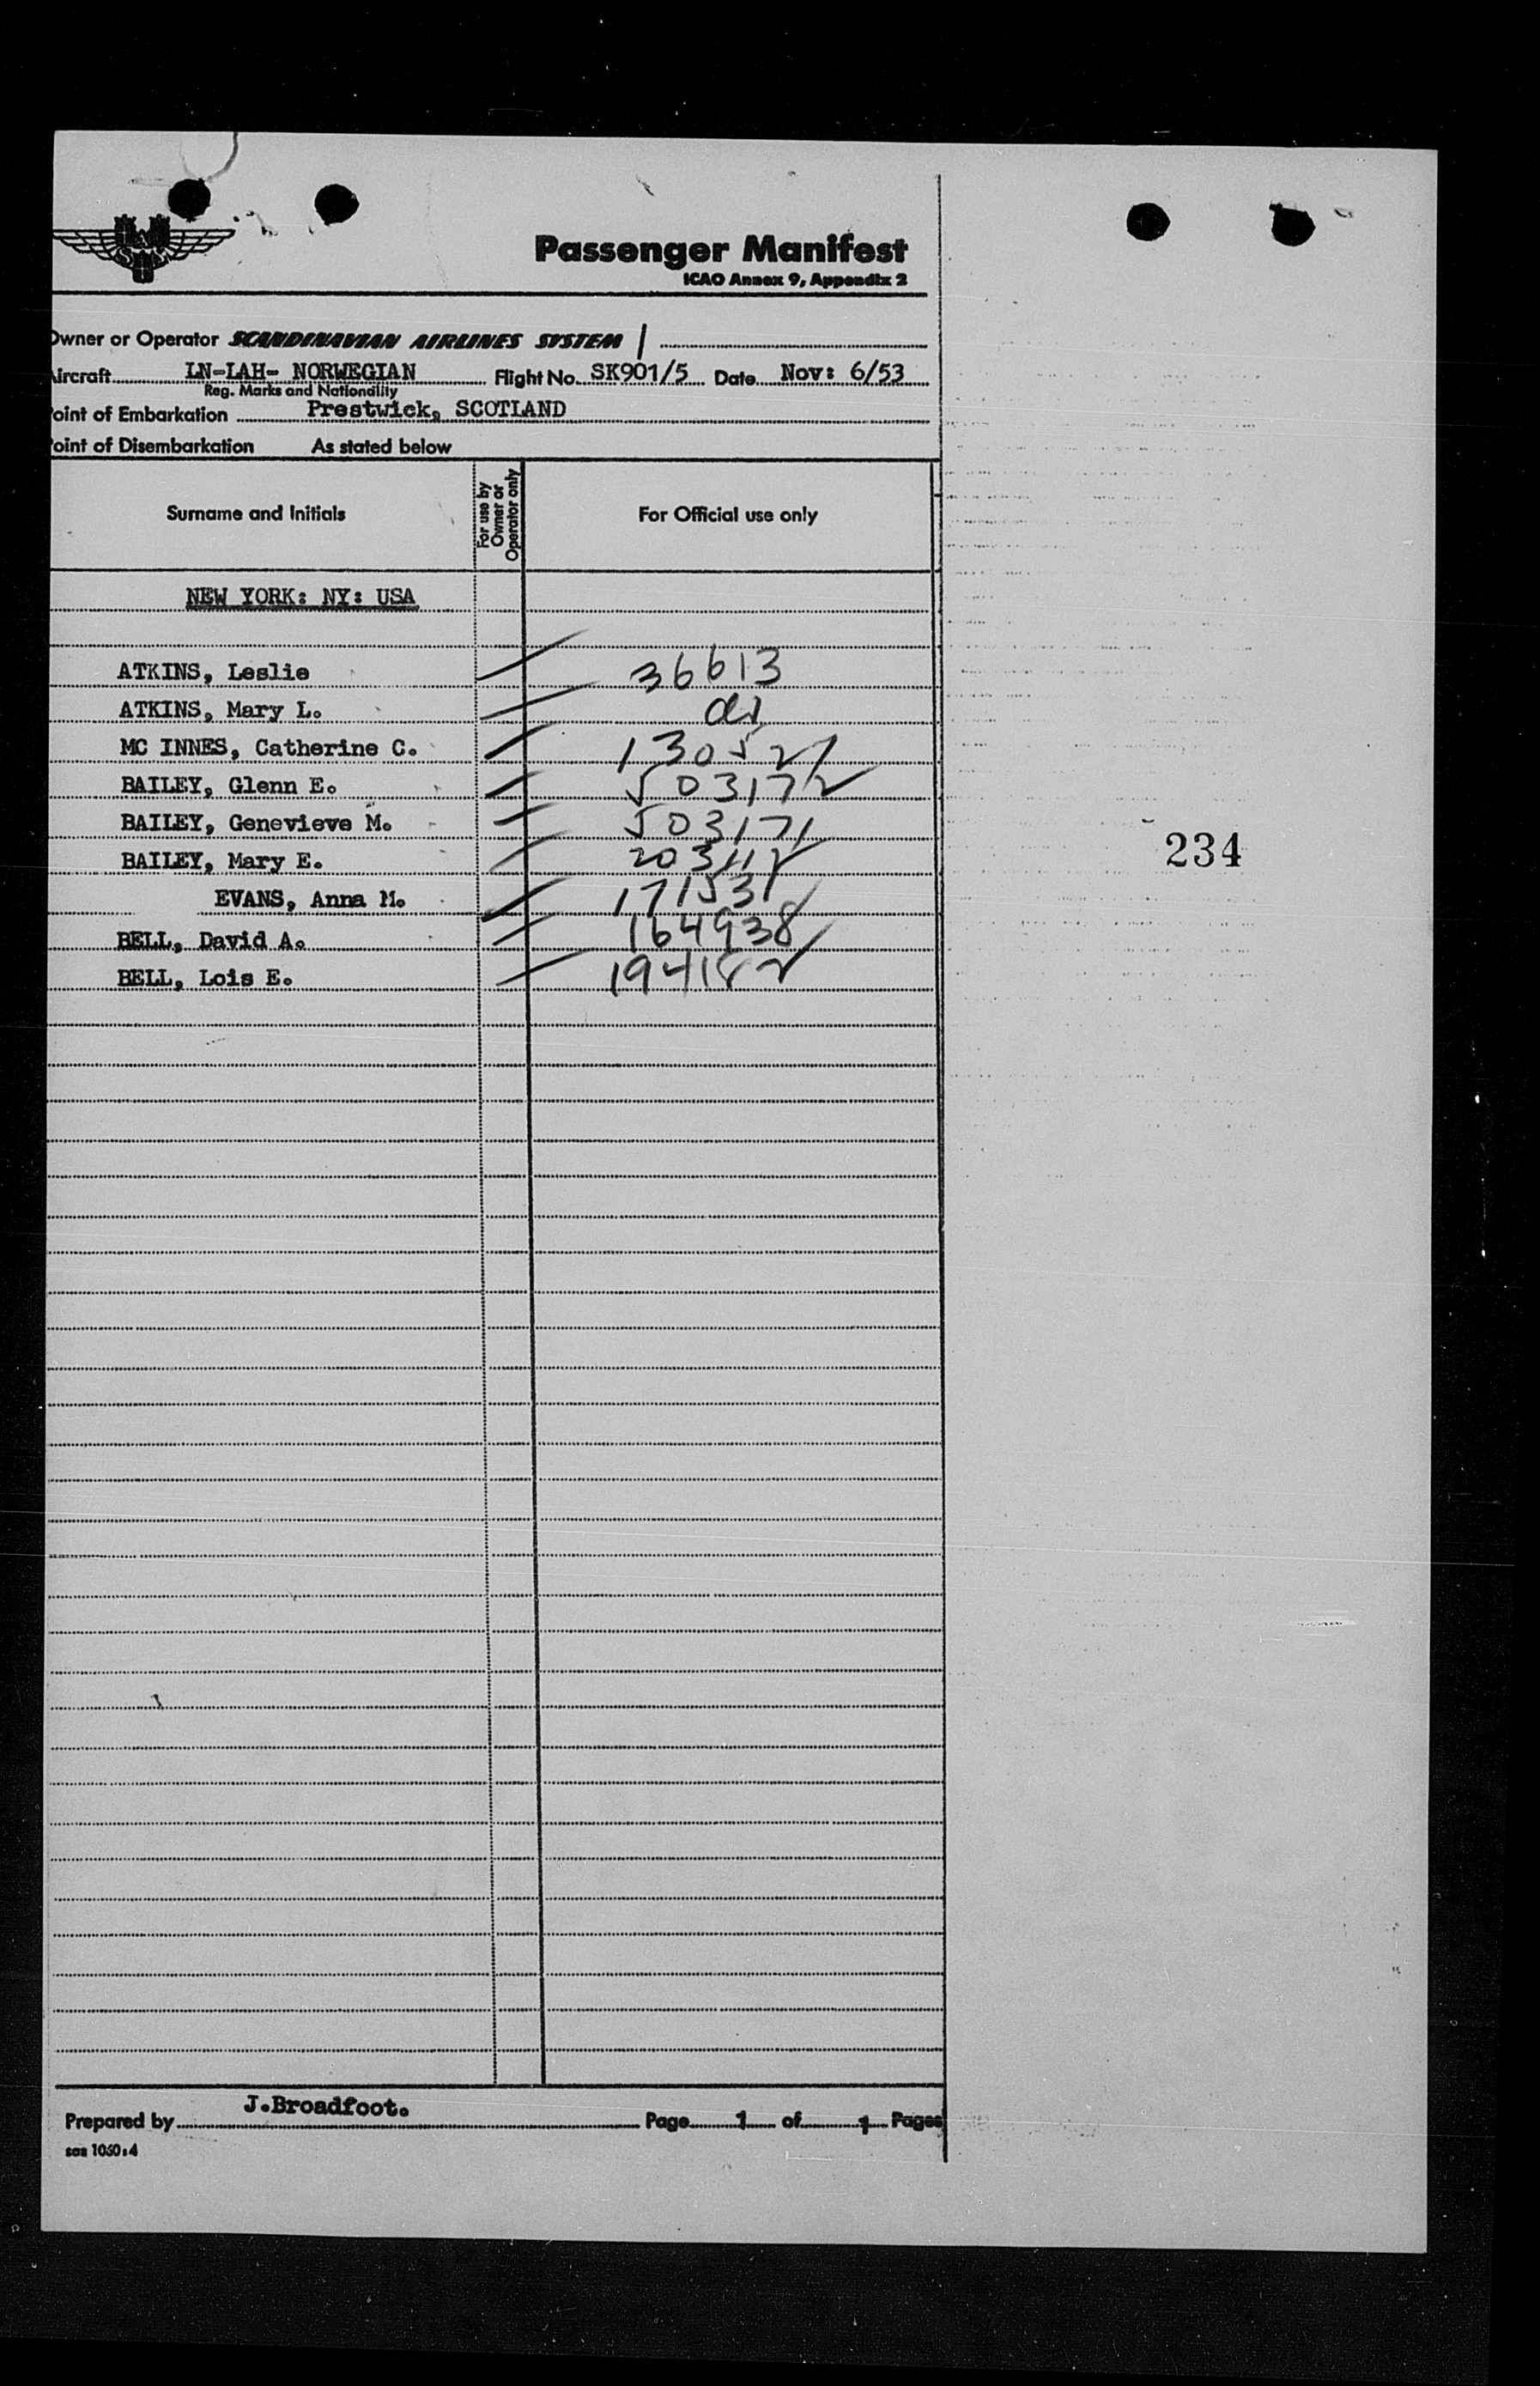 Passenger Manifest
ICAO Annex 9, Appendix 2
Owner or Operator SCANDINAVIAN AIRLINES SYSTEM
Aircraft LN-LAH- NORWEGIAN Flight No. SK901/5 Date Nov: 6/53
Reg. Marks and Nationality
oint of Embarkation Prestwick, SCOTLAND
oint of Disembarkation As stated below
Surname and Initials For use by Owner or Operator only For Official use only
NEW YORK: NY: USA
ATKINS, Leslie 36613
ATKINS, Mary L.
MC INNES, Catherine C. 130521
BAILEY, Glenn E. 503172
BAILEY, Genevieve M. 503171
234
BAILEY, Mary E.
EVANS, Anna M. 171531
BELL, David A. 164938
BELL, Lois E. 194182
Prepared by J.Broadfoot. Page 1 of 1 Pages
sas 1060:4